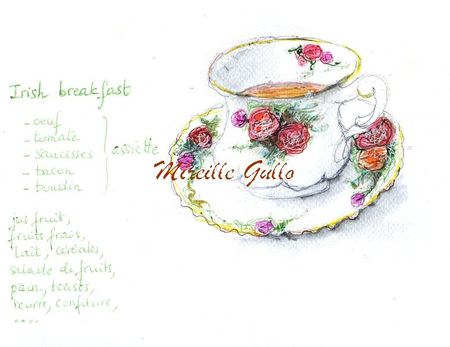 Irish breakfast
- oeuf
- tomate
- saucisses
- bacon
- boudin
assiette
Mireille Gullo
jus fruit,
fruits frais,
lait, céréales,
salade de fruits,
pain, toasts,
beurre, confiture,
....